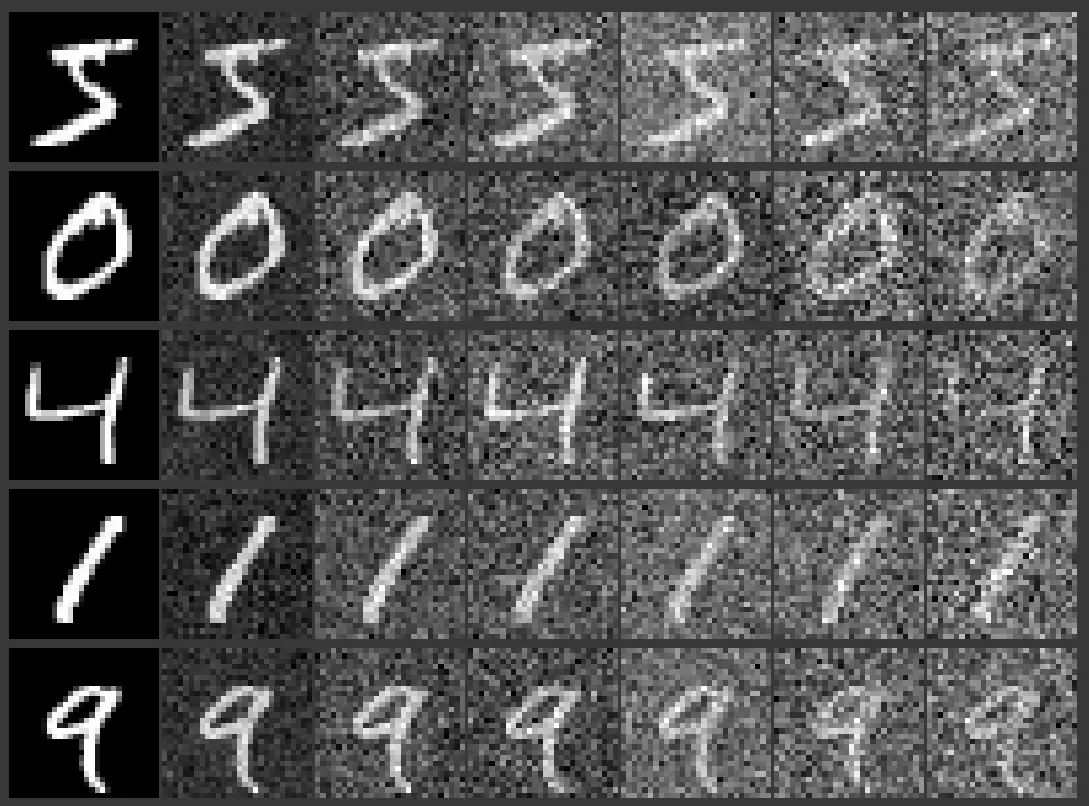 5 5 5 5 5 5 5
0 0 0 0 0 0 0
4 4 4 4 4 4 4
1 1 1 1 1 1 1
9 9 9 9 9 9 9